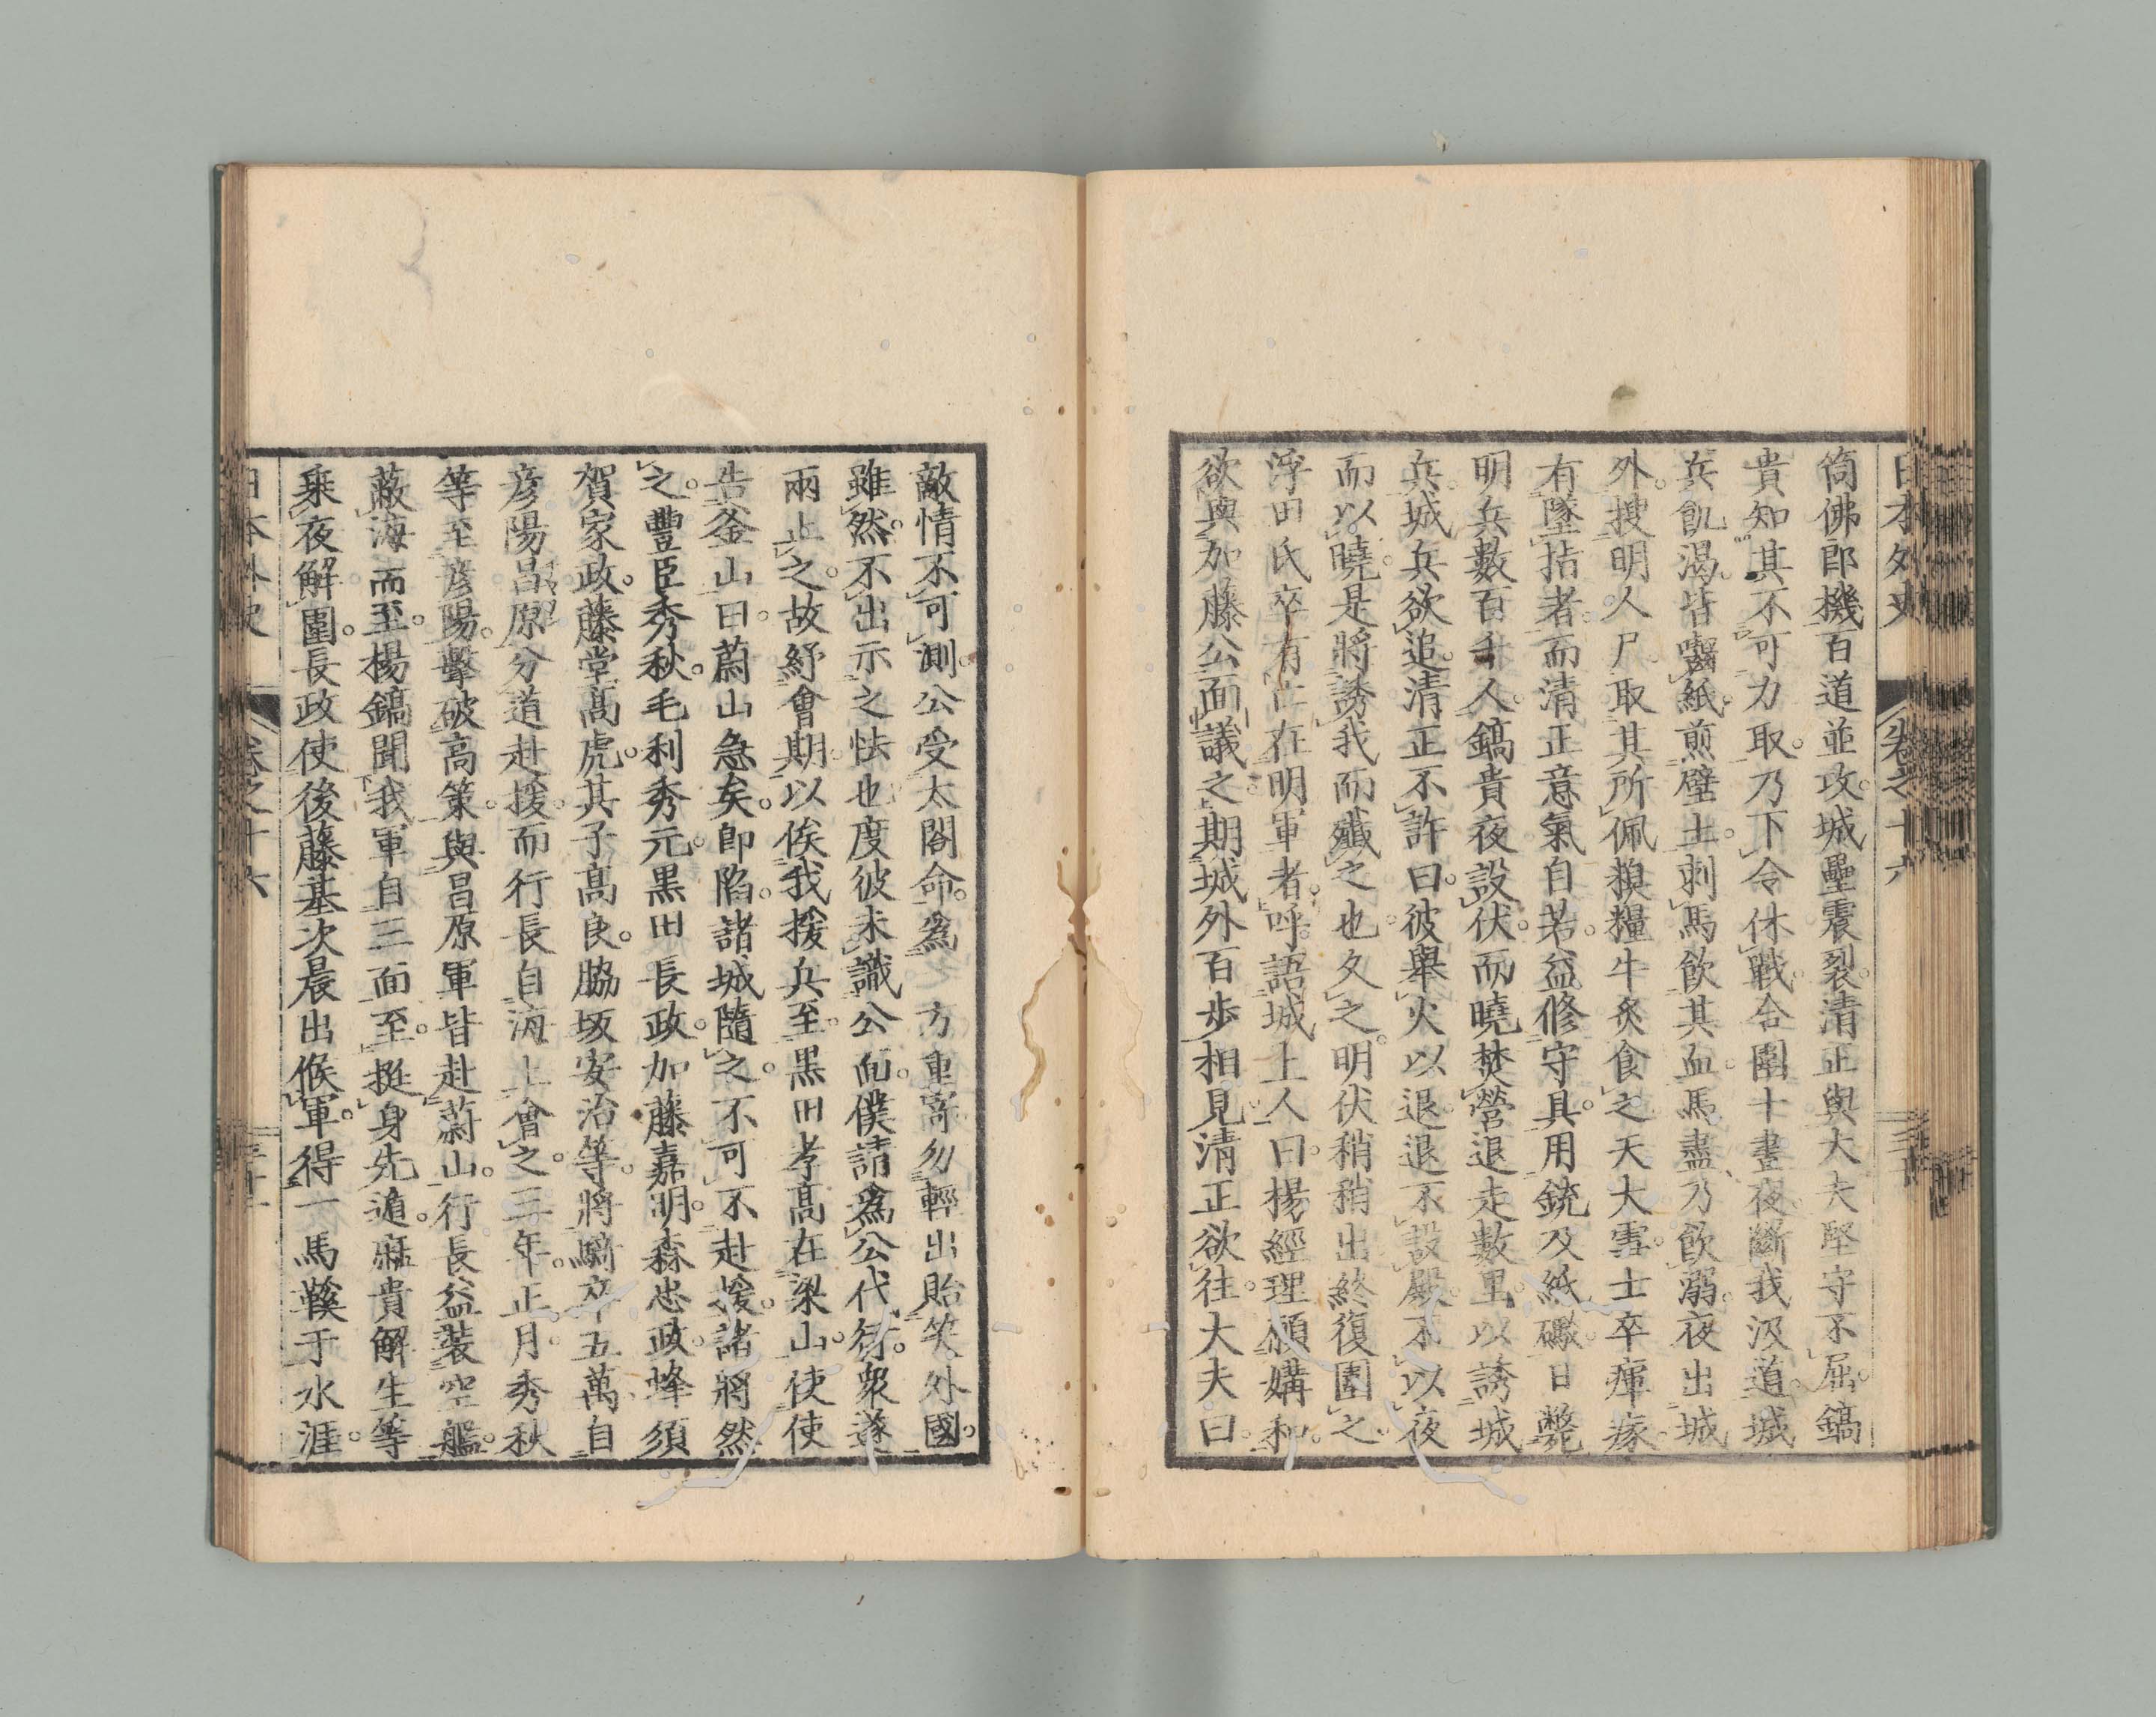 日本外史 卷之十六
筒佛郎機百道並攻。城壘震裂。清正與大夫堅守不屈。鎬
貴知其不可力取。乃下令休戰。合圍十晝夜。斷我汲道。城
兵飢渴。皆嚙紙煎壁土。刺馬飲其血。馬盡乃飲溺。夜出城
外。搜明人尸。取其所佩糗糧牛炙食之。天大雪。士卒瘃
有墜指者。而清正意氣自若。益修守具。用銃及紙礮。日斃
明兵數百千人。鎬貴夜設伏。而曉焚營退走數里。以誘城
兵。城兵欲追。清正不許曰。彼舉火以退。退不設殿。不以夜
而以曉。是將誘我而殲之也。久之。明伏稍稍出。終復圍之。
浮田氏卒有亡在明軍者。呼語城上人曰。楊經理願媾和。
欲與加藤公面議之。期城外百步相見。清正欲往。大夫曰。
敵情不可測。公受太閤命。爲方重寄。勿輕出貽笑外國。
雖然。不出示之怯也。度彼未識公面。僕請爲公代行。衆遂
兩止之。故紓會期。以俟我援兵至。黒田孝高在梁山。使使
告釜山曰。蔚山急矣。卽陷。諸城隨之。不可不赴援。諸將然
之。豐臣秀秋。毛利秀元。黒田長政。加藤嘉明。森忠政。蜂須
賀家政。藤堂高虎。其子高良。脇坂安治等。將騎卒五萬。自
彦陽昌原分道赴援。而行長自海上會之。三年。正月。秀秋
等至彦陽。擊破高策。與昌原軍皆赴蔚山。行長益裝空艦。
蔽海而至。楊鎬聞我軍自三面至。挺身先遁。麻貴解生等
乘夜解圍。長政使後藤基次晨出候軍。得一馬鞍于水涯。
日本外史 卷之十六